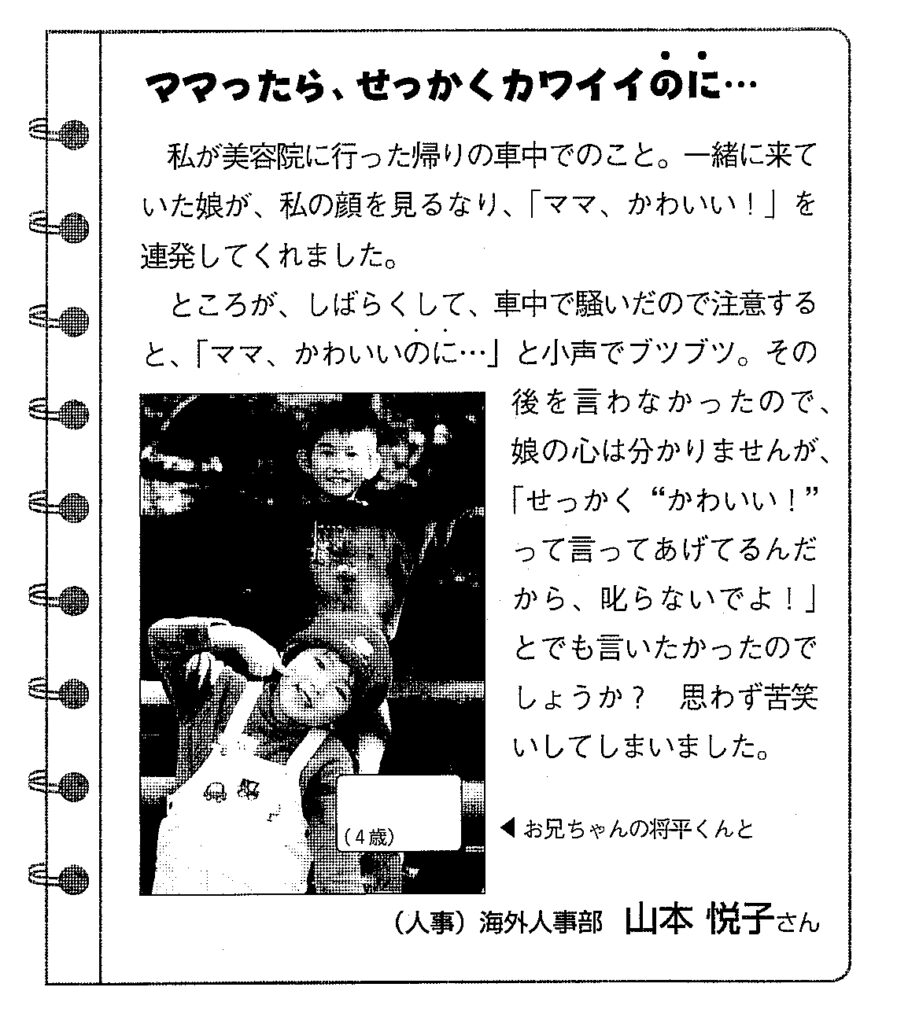 ママったら、せっかくカワイイのに…
私が美容院に行った帰りの車中でのこと。一緒に来て
いた娘が、私の顔を見るなり、「ママ、かわいい！」を
連発してくれました。
ところが、しばらくして、車中で騒いだので注意する
と、「ママ、かわいいのに…」と小声でブツブツ。その
後を言わなかったので、
娘の心は分かりませんが、
「せっかく“かわいい！”
って言ってあげてるんだ
から、叱らないでよ！」
とでも言いたかったので
しょうか？　思わず苦笑
いしてしまいました。
（4歳）
◀お兄ちゃんの将平くんと
（人事）海外人事部　山本 悦子さん